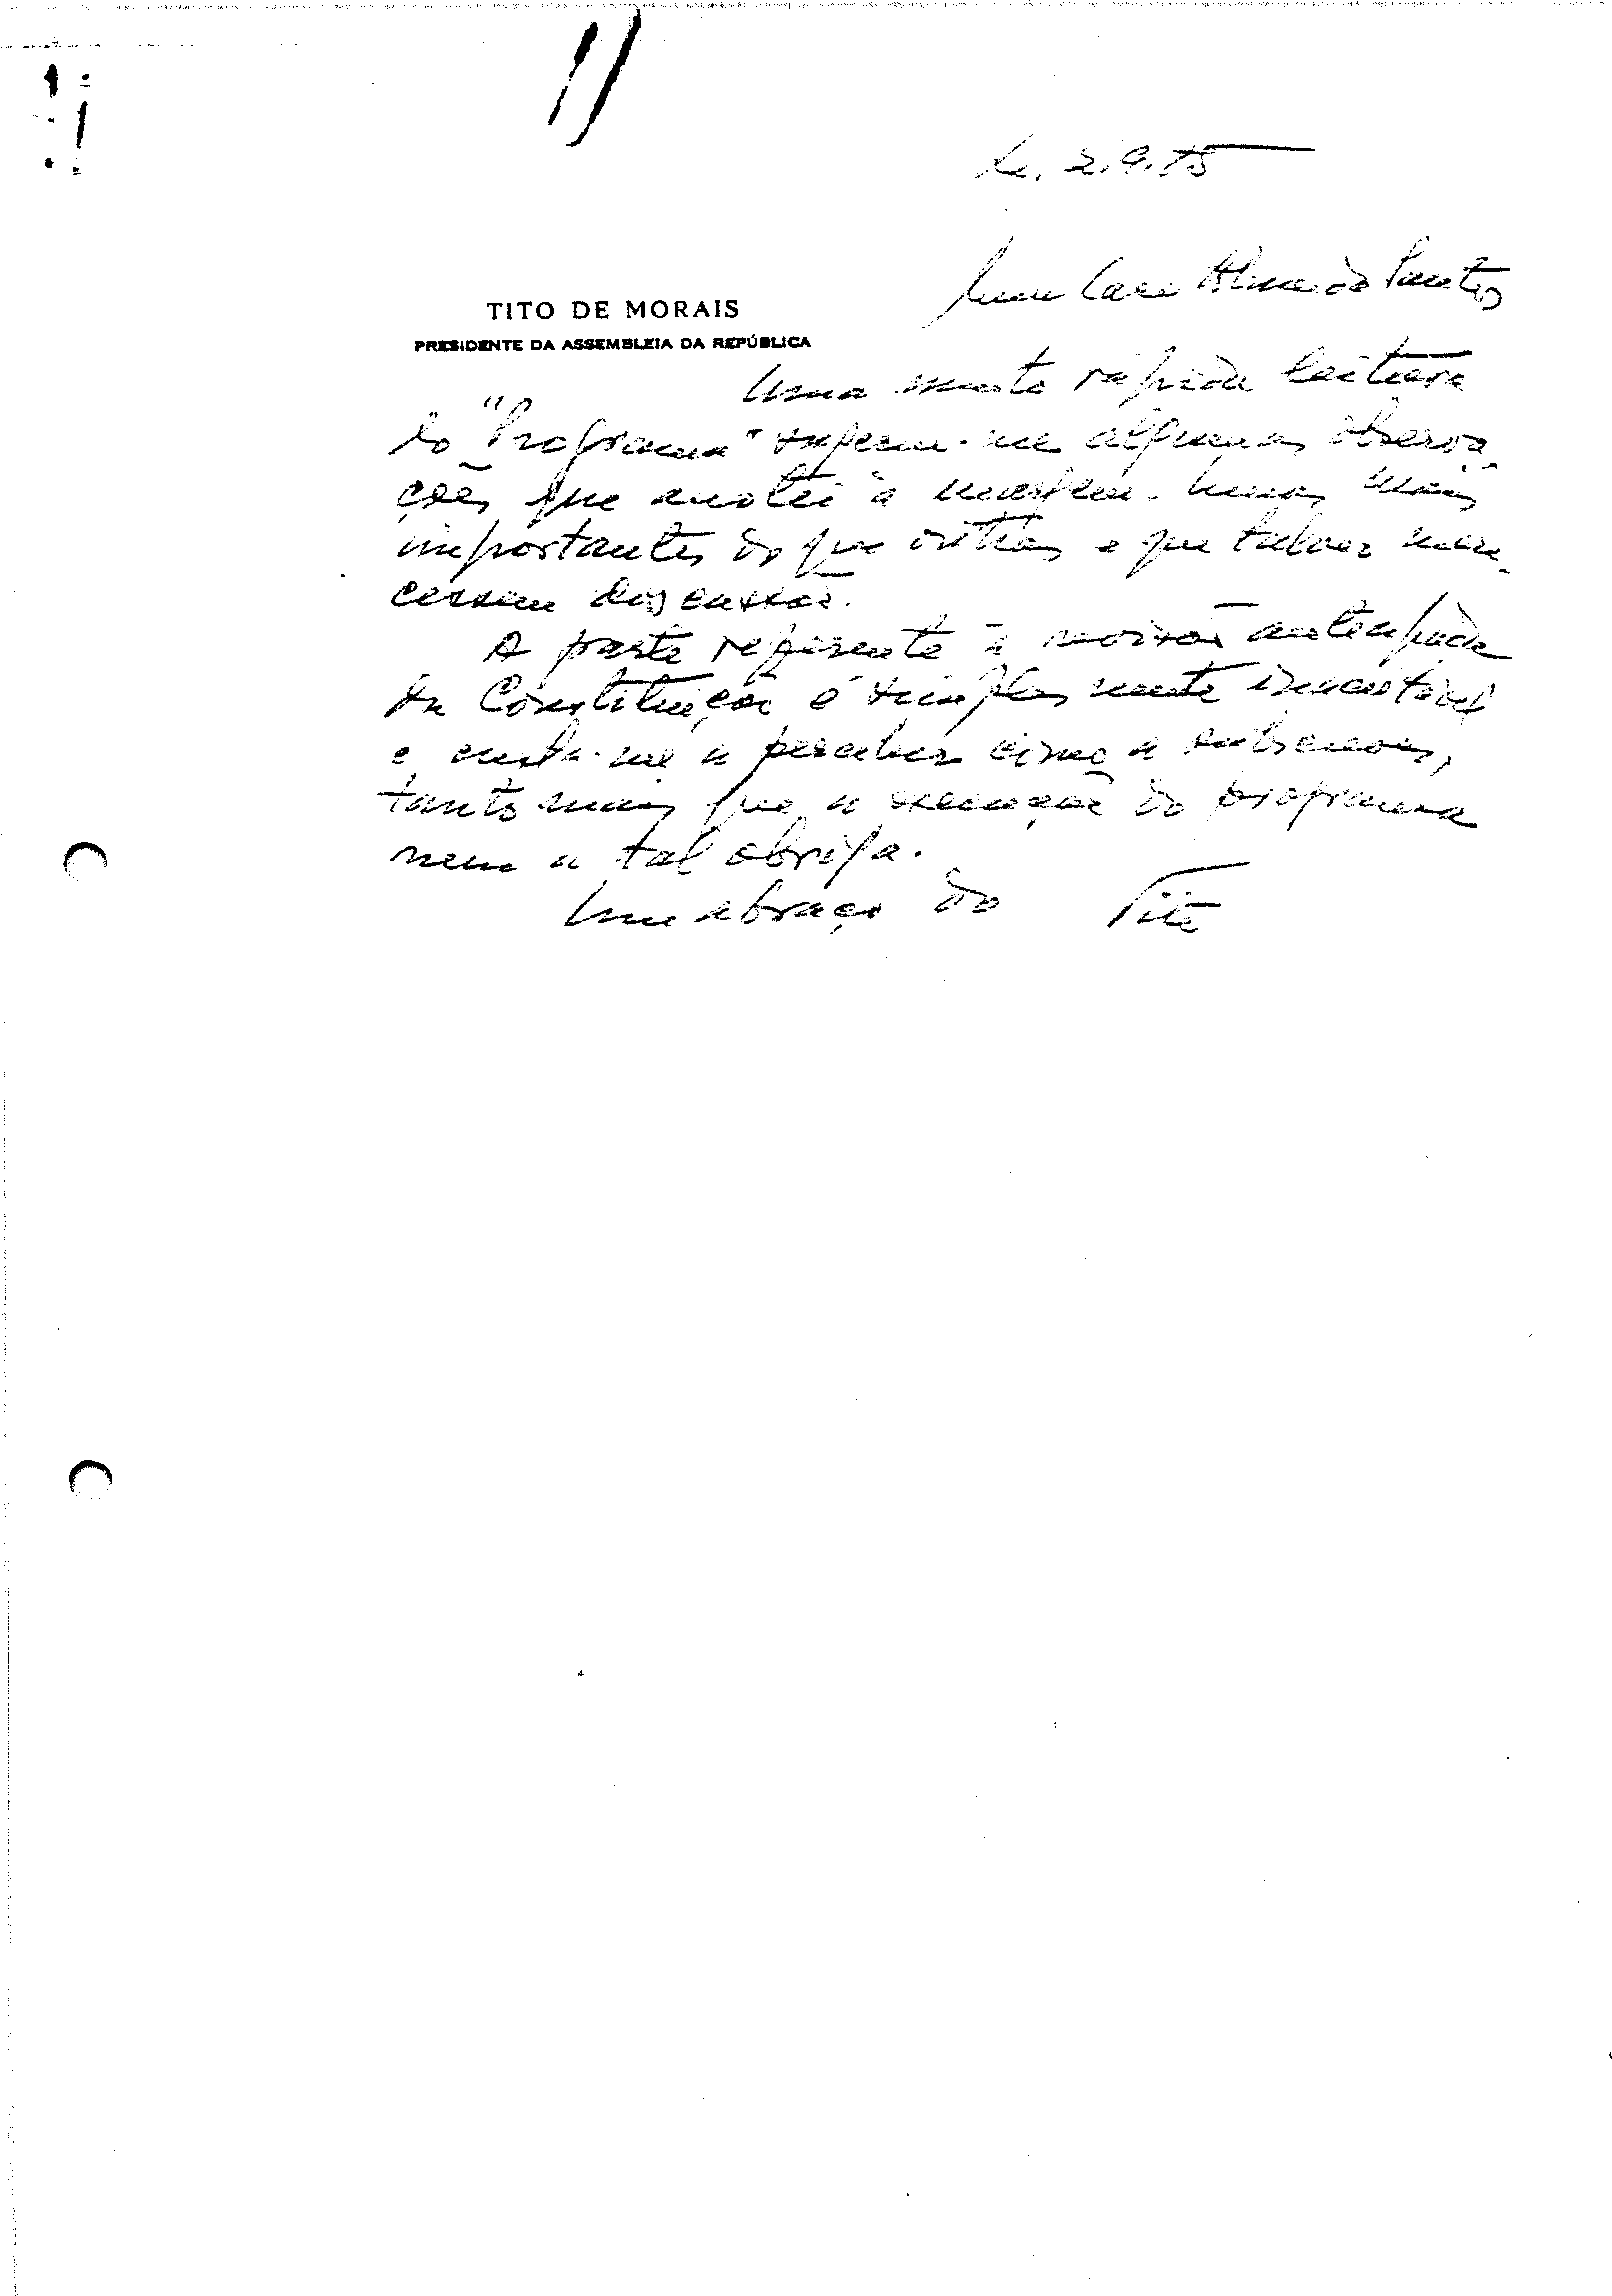 Lx. 2.9.85
Meu Caro Almeida Santos
TITO DE MORAIS
PRESIDENTE DA ASSEMBLEIA DA REPÚBLICA
Uma muito rápida leitura
do "Programa" sugeriu-me algumas observa-
ções que anotei à margem. Umas mais
importantes do que outras e que talvez mere-
cessem discussão.
A parte referente à revisão antecipada
da Constituição é simplesmente inaceitável
e custa-me a perceber como a subscreves,
tanto mais que a redacção do programa
nem a tal obriga.
Um abraço do Tito